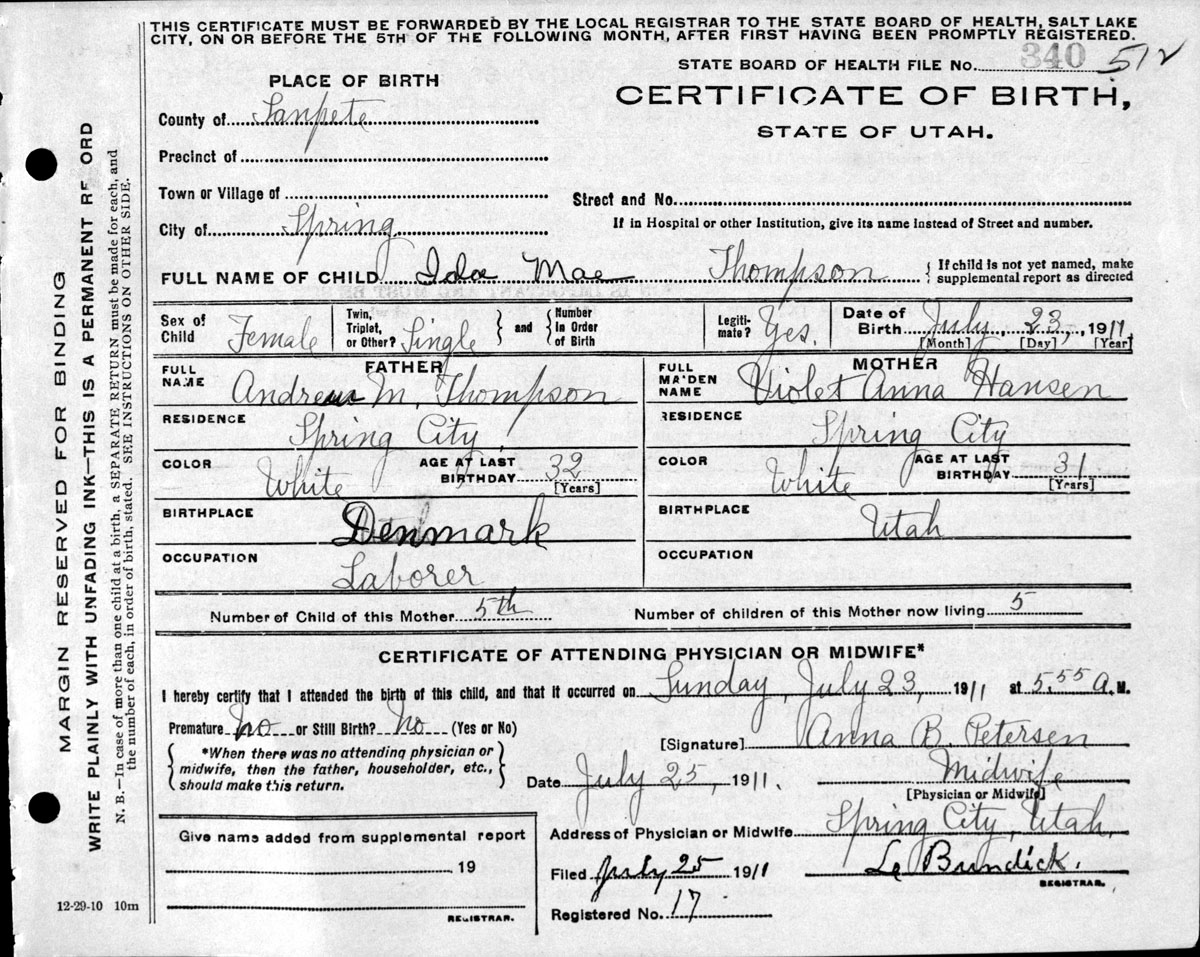 THIS CERTIFICATE MUST BE FORWARDED BY THE LOCAL REGISTRAR TO THE STATE BOARD OF HEALTH, SALT LAKE
CITY, ON OR BEFORE THE 5TH OF THE FOLLOWING MONTH, AFTER FIRST HAVING BEEN PROMPTLY REGISTERED.
STATE BOARD OF HEALTH FILE No. 340 512
PLACE OF BIRTH
CERTIFICATE OF BIRTH,
STATE OF UTAH.
County of Sanpete
Precinct of
Town or Village of
Street and No.
City of Spring
If in Hospital or other Institution, give its name Instead of Street and number.
FULL NAME OF CHILD Ida Mae Thompson { If child is not yet named, make
supplemental report as directed
Sex of Child Female Twin, Triplet, or Other? Single } and { Number In Order of Birth Legiti- mate? Yes. Date of Birth July 23, 1911
[Month] [Day] [Year]
FATHER MOTHER
FULL NAME Andrew M. Thompson FULL MAIDEN NAME Violet Anna Hansen
RESIDENCE Spring City, RESIDENCE Spring City
COLOR White AGE AT LAST BIRTHDAY 32 [Years] COLOR White AGE AT LAST BIRTHDAY 31 [Years]
BIRTHPLACE Denmark BIRTHPLACE Utah
OCCUPATION Laborer OCCUPATION
Number of Child of this Mother 5th Number of children of this Mother now living 5
CERTIFICATE OF ATTENDING PHYSICIAN OR MIDWIFE*
I hereby certify that I attended the birth of this child, and that it occurred on Sunday, July 23, 1911 at 5.55 A. M.
Premature No or Still Birth? No (Yes or No)
[Signature] Anna B. Petersen
{ *When there was no attending physician or
midwife, then the father, householder, etc.,
should make this return. }
Date July 25, 1911. Midwife
[Physician or Midwife]
Address of Physician or Midwife Spring City, Utah,
Give name added from supplemental report
19
REGISTRAR.
Filed July 25 1911 Le Bundick.
REGISTRAR.
Registered No. 17
12-29-10 10m
MARGIN RESERVED FOR BINDING
WRITE PLAINLY WITH UNFADING INK—THIS IS A PERMANENT RE ORD
N. B.—In case of more than one child at a birth, a SEPARATE RETURN must be made for each, and
the number of each, in order of birth, stated. SEE INSTRUCTIONS ON OTHER SIDE.